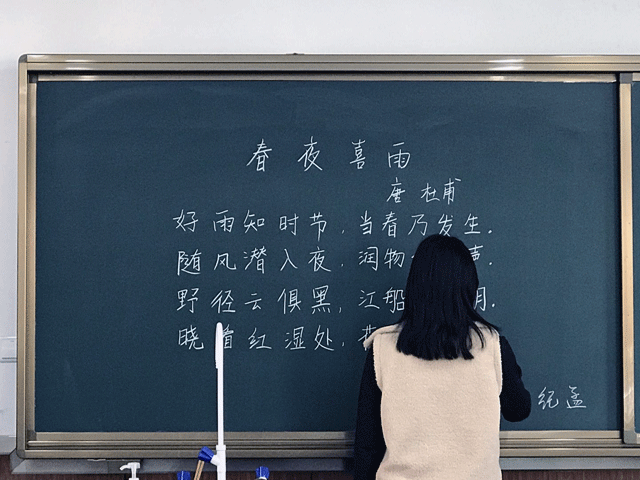 春夜喜雨
唐 杜甫
好雨知时节,当春乃发生.
随风潜入夜.润物声.
野径云俱黑,江船
晓看红湿处,花
纪孟